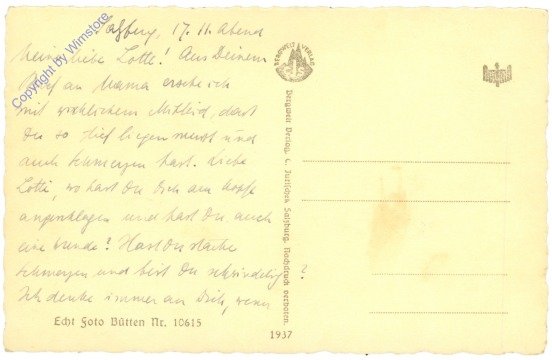 17. 11. Abend
meine liebe Lotte! Aus Deinem
Brief an Mama ersehe ich
mit wirklichem Mitleid, dass
Du so tief liegen musst und
auch Schmerzen hast. Liebe
Lotte, wo hast Du Dich am Kopfe
angeschlagen und hast Du auch
eine Wunde? Hast Du starke
Schmerzen und bist Du schwindelig?
Ich denke immer an Dich, wenn
Echt Foto Bütten Nr. 10615
Copyright by Wimstore
BERGWELT VERLAG
Bergwelt Verlag, C. Jurischek Salzburg. Nachdruck verboten.
1937